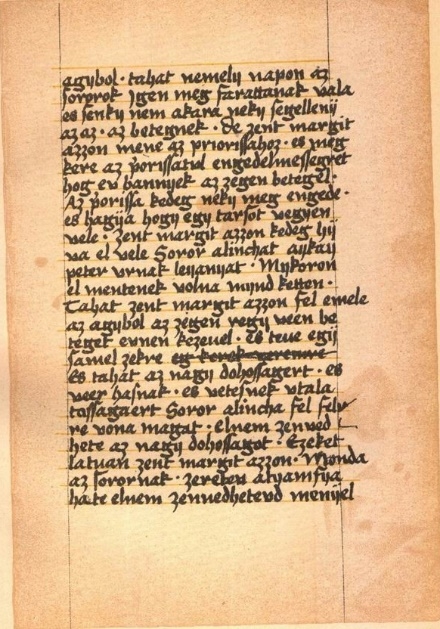 agybol · tahat nemely napon az
sororok ygen meg farattanak vala
es senky nem akara neky segelleny
az · az · betegnek · de zent margit
azzon mene az priorissahoz · es meg
kere az porissatul engedelmesseget
hog ev bannyek az zegen beteggel ·
Az porissa kedeg neky meg engede ·
es hagya hogy egy tarsot vegyen
vele · zent margit azzon kedeg hy
va el vele Soror alinchat
peter vrnak leyanyat · Mykoron
el mentenek volna mynd ketten ·
Tahat zent margit azzon fel emele
az agybol az zegen veen be
teget evnen kezeuel · Es teue egy
samel zekre eg kerek veremre
Es tahat az nagy dohossagert · es
veer hasnak · es vetesnek vtala
tossagaert Soror alincha fel fely
re vona magat · elnem zenved
hete az nagy dohossagot · Ezeket
latuan zent margit azzon · Monda
az sorornak · zereten atyamfya
ha te elnem zenvedheted menyel